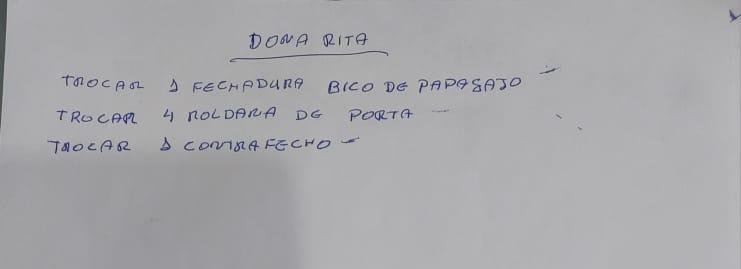 DONA RITA
TROCAR 1 FECHADURA BICO DE PAPAGAJO -
TROCAR 4 ROLDANA DE PORTA -
TROCAR 1 CONTRAFECHO -